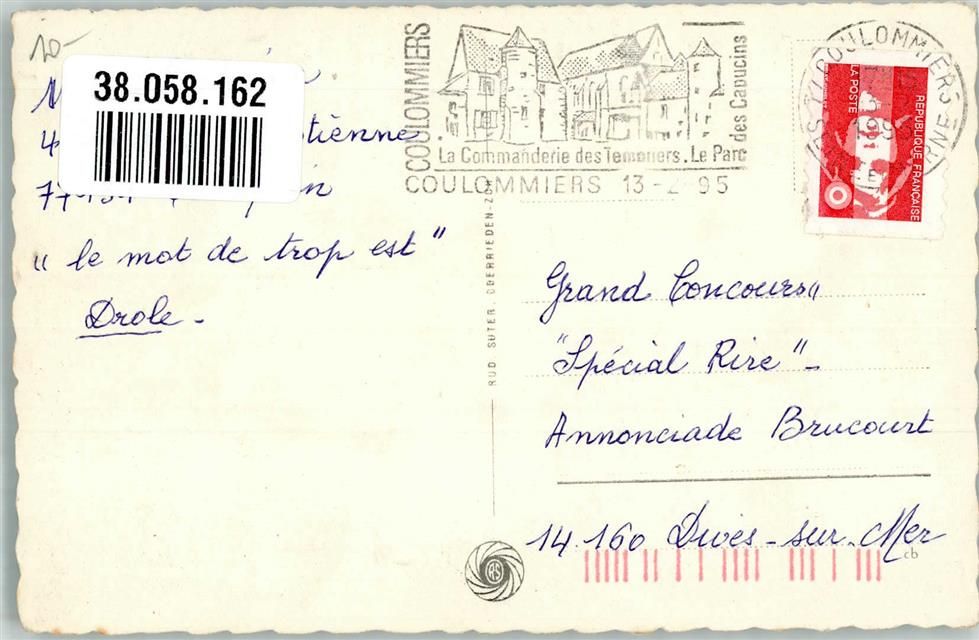 20-
38.058.162
tienne
77
in
" le mot de trop est "
Drole -
COULOMMIERS
des Capucins
La Commanderie des Templiers. Le Parc
COULOMMIERS 13-2-95
COULOMMIERS
MARNE
LA POSTE
REPUBLIQUE FRANÇAISE
RUD. SUTER, OBERRIEDEN-ZCH
Grand Concours
"Spécial Rire" -
Annonciade Brucourt
14 160 Dives-sur-Mer
RS
cb